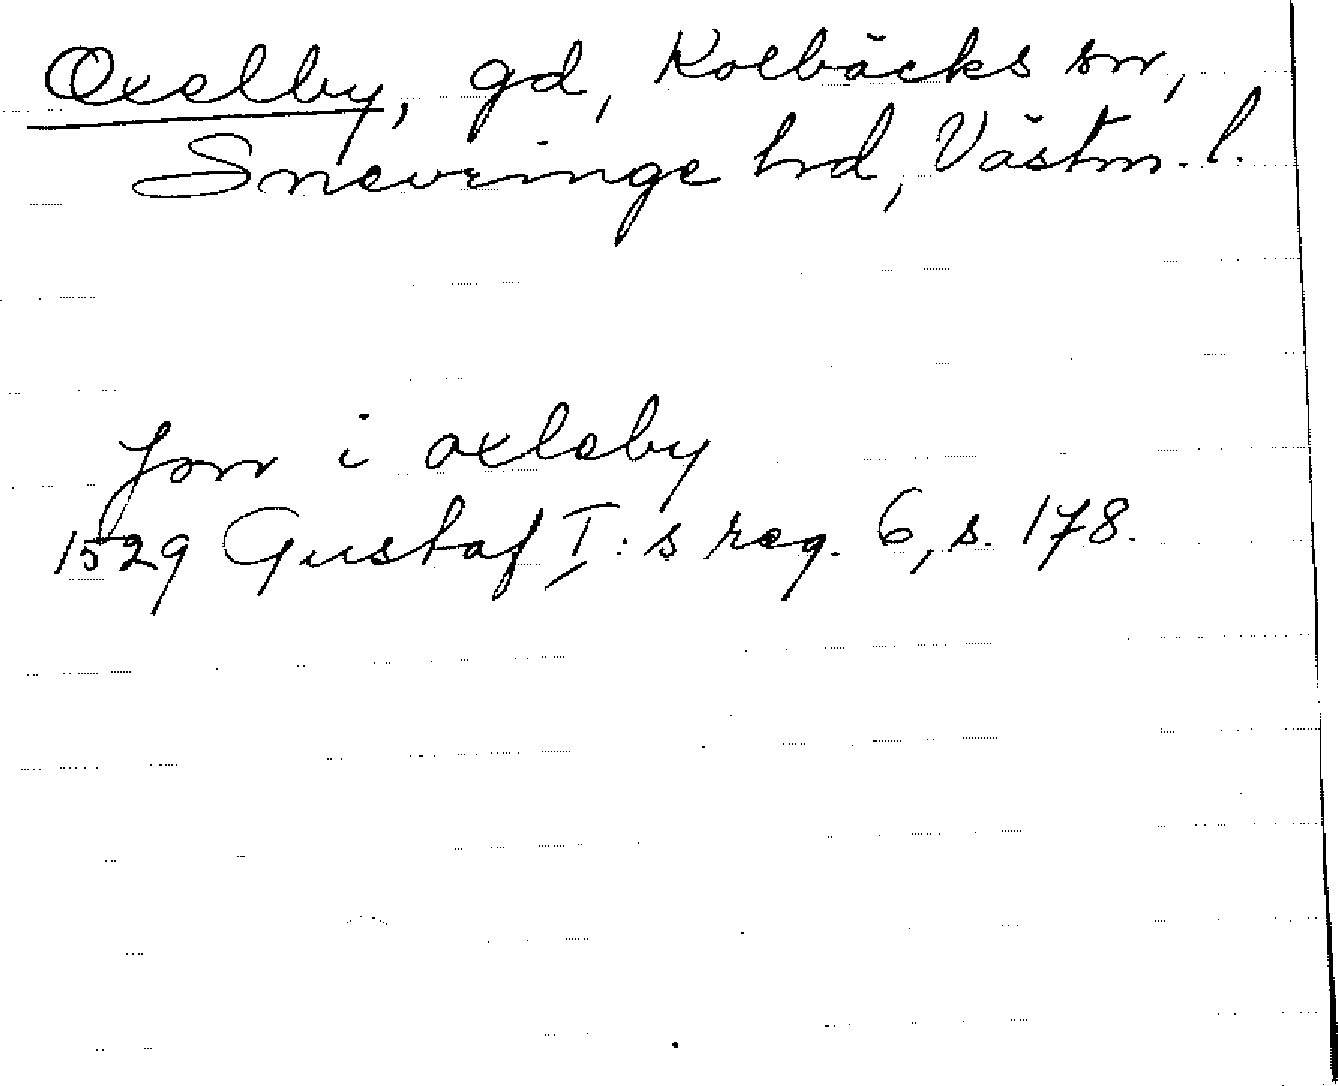 Oxelby, gd, Kolbäcks sn,
Snevringe hd, Västm. l.
Jon i oxleby
1529 Gustaf I:s reg. 6, s. 178.